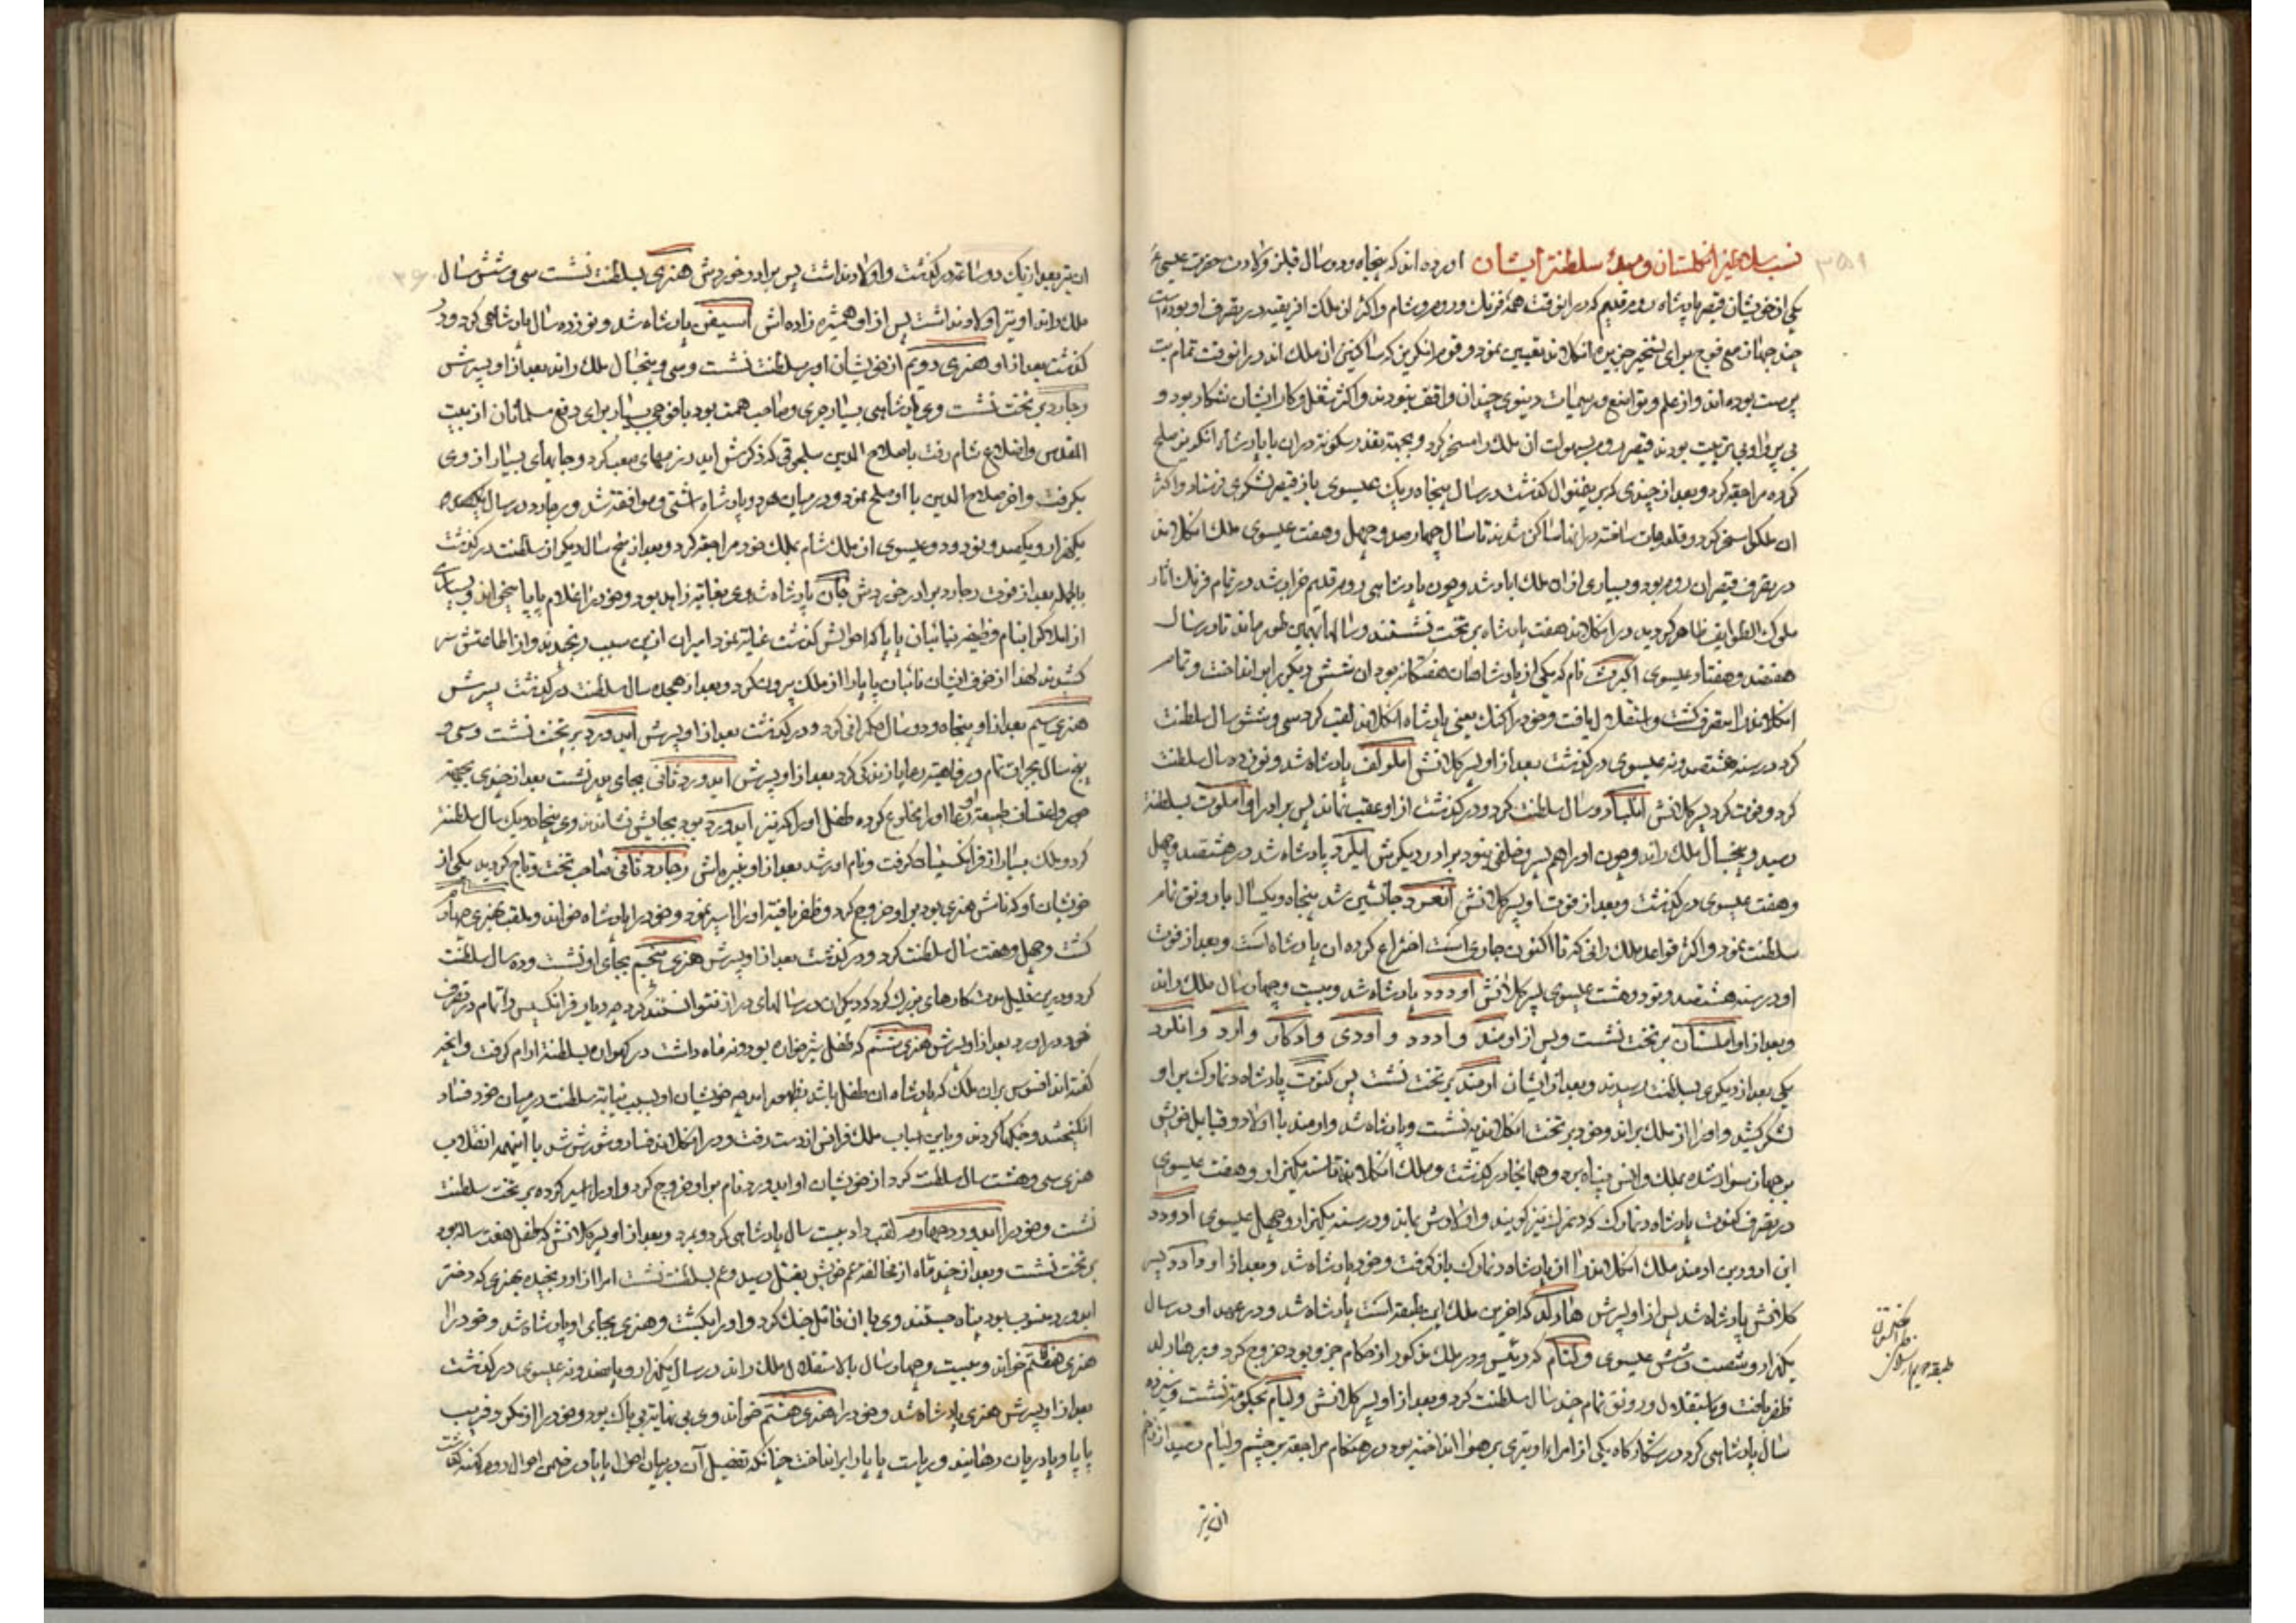 نسب سلاطین انگلستان و مبدء سلطنت ایشان اورده اند که پنجاه و دو سال قبل از ولادت حضرت عیسی ع
یکی از خویشان قیصر پادشاه روم قدیم که در انوقت همهٔ فرنک و روم و شام و اکثر از ملک افریقیه در تصرف او بوده است
چند جهاز مع فوج برای تسخیر جزیره انکلاند تعیین نمود و قوم انکریز که ساکنین ان ملک اند در انوقت تمام بت
پرست بوده اند و از علم و تواضع و رسمیات دنیوی چندان واقف نبودند و اکثر شغل و کار ایشان شکار بود و
بی پروا و بی تربیت بودند قیصر روم بسهولت ان ملک را مسخر کرد و بجهة تعذر سکونت دران با پادشاه انکریز صلح
کرده مراجعه کرد و بعد از چندی که برینمنوال کذشت در سال پنجاه و یک عیسوی باز قیصر لشکری فرستاد و اکثر
ان ملک را مسخر کرد و قلعه جات ساخته در انجا ساکن شدند تا سال چهارصد و چهل و هفت عیسوی ملک انکلاند
در تصرف قیصران روم بود و بسیاری ازان ملک اباد شد و چون پادشاهی روم قدیم خراب شد در تمام فرنک اثار
ملوک الطوایف ظاهر کردید در انکلاند هفت پادشاه بر تخت نشستند و سالها بهمین طور ماند تا در سال
هفتصد و هفتاد عیسوی اکبرت نام که یکی از پادشاهان هفتکانه بود ان شش دیکر را بر انداخت و تمام
انکلاند را متصرف کشت و استقلال یافت و خود را کنک یعنی پادشاه انکلاند لقب کرد سی و شش سال سلطنت
کرد در سنه هشتصد و نه عیسوی در کذشت بعد از او پسر کلانش اتلولف پادشاه شد و نوزده سال سلطنت
کرد و فوت کرد پسر کلانش اتلبالد دو سال سلطنت کرد و در کذشت از او عقب نماند پس برادر او اتلبرت بسلطنة
رسید و پنجسال ملک راند و چون او را هم پسر و خلفی نبود برادر دیکرش اتلرد پادشاه شد در هشتصد و چهل
و هفت عیسوی در کذشت و بعد از فوت او پسر کلانش الفرد جانشین شد پنجاه و یکسال با رونق تام
سلطنت نمود و اکثر قواعد ملک رانی که تا اکنون جاری است اختراع کرده ان پادشاه است و بعد از فوت
او در سنه هشتصد و نود و هشت عیسوی پسر کلانش ادورد پادشاه شد و بیست و چهار سال ملک راند
و بعد از او اتلستان بر تخت نشست و پس از او مند و ادرد و اودی و ادکار و ادرد و اتلرد
یکی بعد از دیکری بسلطنت رسیدند و بعد از ایشان ادمند بر تخت نشست پس کنوت پادشاه دنمارک بر او
لشکر کشید و او را از ملک براند و خود بر تخت انکلاند بنشست و پادشاه شد و ادمند با اولاد و قبایل خویش
بر جهاز سوار شده بملک فرانس پناه برد و همانجا در کذشت و ملک انکلاند تا سنه یکهزار و هفت عیسوی
در تصرف کنوت پادشاه دنمارک که دنمرک نیز کویند و اولادش بماند و در سنه یکهزار و چهل عیسوی ادورد
ابن ادورد بن ادمند ملک انکلاند را از پادشاه دنمارک باز کرفت و خود پادشاه شد و بعد از او ادورد پسر
کلانش پادشاه شد پس از او پسرش هارلد که اخرین ملک این طبقه است پادشاه شد و در عهد او در سال
یکهزار و شصت و شش عیسوی ولیام که رئیس و در ملک مذکور از حکام جزو بود خروج کرد و بر هارلد
ظفر یافت و باستقلال و رونق تمام چند سال سلطنت کرد و بعد از او پسر کلانش ولیام بحکومت نشست و سیزده
سال پادشاهی کرد در شکار کاه یکی از امراء او تیری بر هوا انداخته بود در هنکام مراجعه بر چشم ولیام رسید از زخم
ان تیر
ان تیر بعد از یک دو ساعت در کذشت و اولاد نداشت پس برادر خوردش هنری بسلطنت نشست سی و شش سال
ملک راند او نیز اولاد نداشت پس از او همشیره زاده اش استیفن پادشاه شد و نوزده سال پادشاهی کرد و در
کذشت بعد از او هنری دویم از خویشان او بسلطنت نشست و سی و پنجسال ملک راند بعد از او پسرش
رجارد بر تخت نشست وی پادشاهی بسیار جری و صاحب همت بود با فوجی بسیار برای دفع مسلمانان از بیت
المقدس و اضلاع شام رفت با صلاح الدین سلجوقی که ذکرش اید رزمهای صعب کرد و جایهای بسیار از وی
بکرفت و اخر صلاح الدین با او صلح نمود و در میان هر دو پادشاه اشتی و موافقت شد و رجارد در سال
یکهزار و یکصد و نود و دو عیسوی از ملک شام بملک خود مراجعه کرد و بعد از پنج سال دیکر از سلطنت در کذشت
بالجمله بعد از فوت رجارد برادر خوردش جان پادشاه شد وی بغایت زاهد بود و خود را غلام پاپا میخواند و بسیاری
از املاک را بنام وظیفه بنائبان پاپا که احوالش کذشت عنایت نمود امیران ازین سبب رنجیدند و از اطاعتش سر
کشیدند لهذا از خوف ایشان نائبان پاپا را از ملک بیرون کرد و بعد از هجده سال سلطنت در کذشت پسرش
هنری سیم بعد از او پنجاه و دو سال حکمرانی کرد و در کذشت بعد از او پسرش ایدورد بر تخت نشست و سی و
پنج سال بجرات تمام و رفاهیت رعایا زندکی کرد بعد از او پسرش ایدورد ثانی بجای پدر نشست بعد از چندی بجهة
کرد و ملک بسیار از فرانکیسیا کرفت و نام اور شد بعد از او نبیره اش رجارد ثانی صاحب تخت و تاج کردید یکی از
خویشان او که نامش هنری بود بر او خروج کرد و ظفر یافته او را اسیر نمود و خود را پادشاه خواند و ملقب بهنری چهارم
کشت و چهل و هفت سال سلطنت کرد و در کذشت بعد از او پسرش هنری پنجم بجای او نشست و ده سال سلطنت
خود در اورد بعد از او پسرش هنری ششم که طفل شیرخواره بود و نه ماه داشت در کهواره بسلطنت ارام کرفت و انچه
کفته اند افسوس بران ملک که پادشاه ان طفل باشد بظهور امد چه خویشان او بسبب نیابت سلطنت در میان خود فساد
انکیختند و جنکها کردند و باین اسباب ملک فرانس از دست رفت و در انکلاند فساد و شورش شد با اینهمه انقلاب
هنری سی و هشت سال سلطنت کرد از خویشان او ایدورد نام بر او خروج کرد و او را اسیر کرده بر تخت سلطنت
نشست و خود را ایدورد چهارم لقب داد بیست سال پادشاهی کرد و بمرد و بعد از او پسر کلانش که طفل هفت ساله بود
بر تخت نشست و بعد از چند ماه از مخالفت عم خویش بقتل رسید و عم بسلطنت نشست امرا از او رنجیده بهنری که دختر
ایدورد منسوب بود پناه جستند وی با ان قاتل جنک کرد و او را بکشت و هنری بجای او پادشاه شد و خود را
هنری هفتم خواند و بیست و چهار سال بالاستقلال ملک راند در سال یکهزار و پانصد و نه عیسوی در کذشت
بعد از او پسرش هنری پادشاه شد و خود را هنری هشتم خواند وی بی نهایت بی باک بود و خود را از مکر و فریب
پاپا و پادریان رهانید و ریاست پاپا را بر انداخت چنانکه تفصیل آن در بیان احوال پاپا در ضمن احوال روم کهنه کذشت